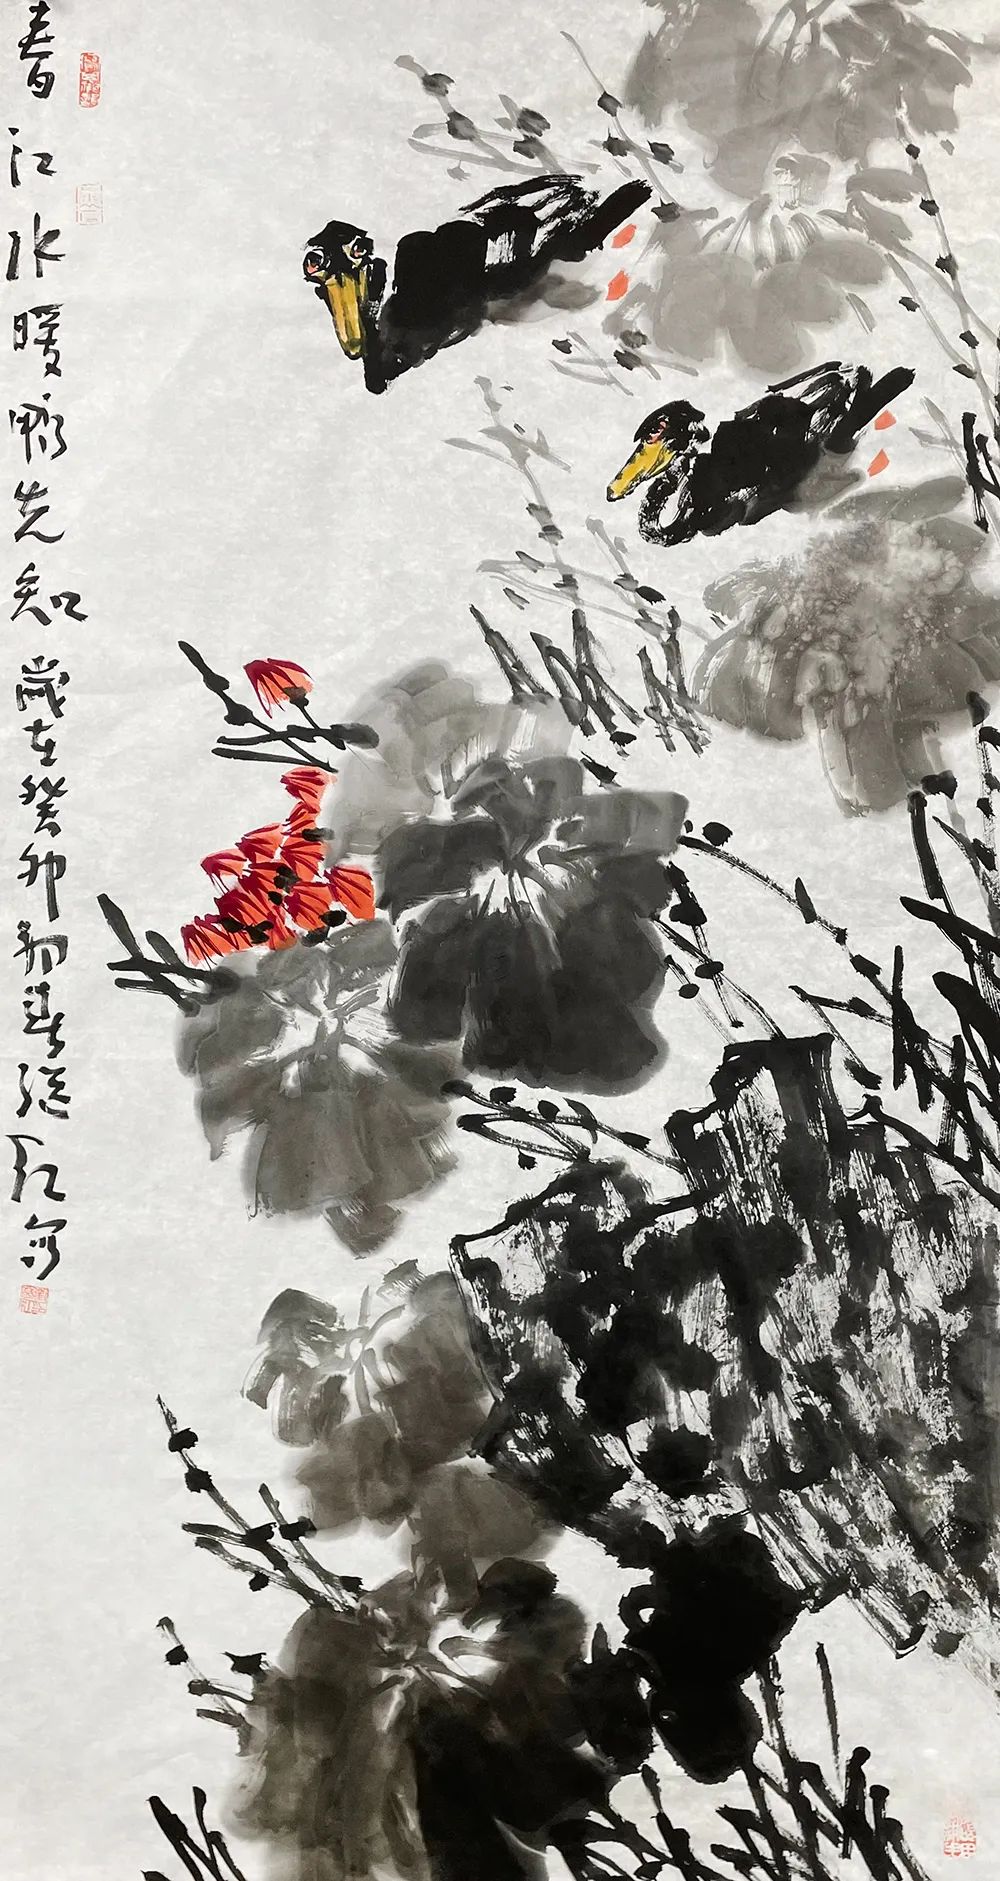 春江水暖鸭先知 岁在癸卯初春 江写